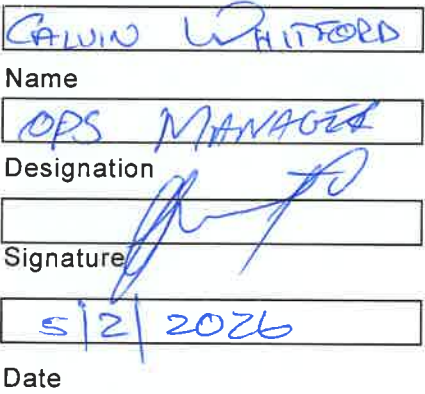 CALVIN WHITFORD
Name
OPS MANAGER
Designation
Signature
5/2/2026
Date